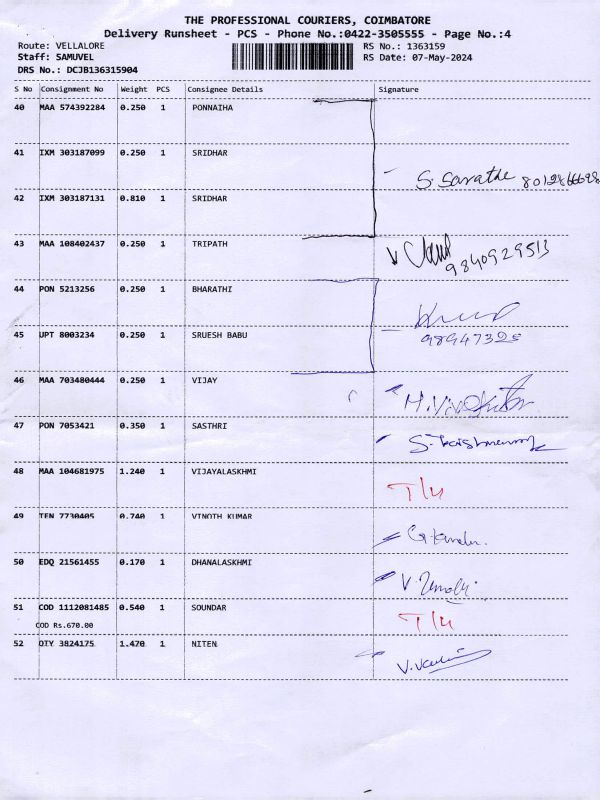 THE PROFESSIONAL COURIERS, COIMBATORE
Delivery Runsheet - PCS - Phone No.:0422-3505555 - Page No.:4
Route: VELLALORE RS No.: 1363159
Staff: SAMUVEL RS Date: 07-May-2024
DRS No.: DCJB136315904
S No Consignment No Weight PCS Consignee Details Signature
40 MAA 574392284 0.250 1 PONNAIHA
41 IXM 303187099 0.250 1 SRIDHAR
S. Sarathe
42 IXM 303187131 0.810 1 SRIDHAR
43 MAA 108402437 0.250 1 TRIPATH
9840929513
44 PON 5213256 0.250 1 BHARATHI
45 UPT 8003234 0.250 1 SRUESH BABU
46 MAA 703480444 0.250 1 VIJAY
47 PON 7053421 0.350 1 SASTHRI
48 MAA 104681975 1.240 1 VIJAYALASKHMI
49 TEN 7730405 0.740 1 VINOTH KUMAR
50 EDQ 21561455 0.170 1 DHANALASKHMI
51 COD 1112081485 0.540 1 SOUNDAR
COD Rs.670.00
52 OTY 3824175 1.470 1 NITEN